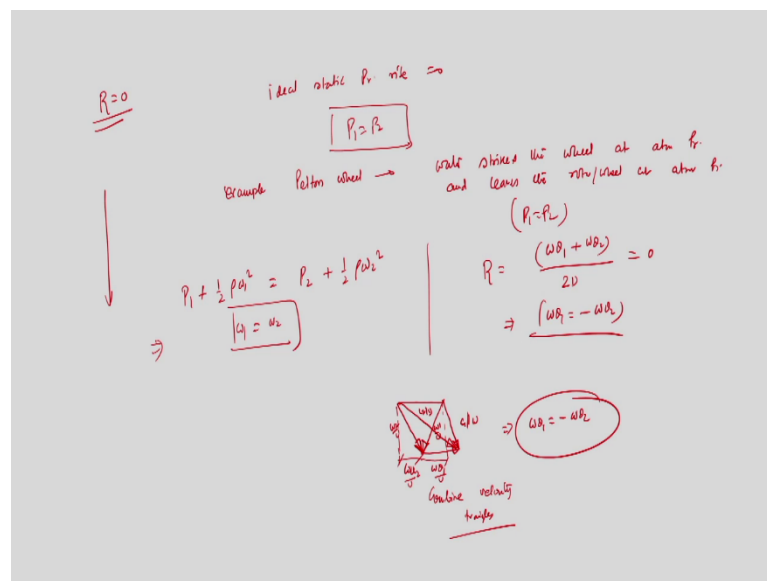 R=0
ideal static Pr. rise ⇒
P₁=P₂
Example Pelton wheel → water strikes the wheel at atm Pr.
and leaves the rotor/wheel at atm Pr.
(P₁=P₂)
P₁ + ½ρω₁² = P₂ + ½ρω₂²
⇒ ω₁ = ω₂
R = (ωθ₁ + ωθ₂) / 2U = 0
⇒ (ωθ₁ = -ωθ₂)
⇒ ωθ₁ = -ωθ₂
Combine velocity
triangles